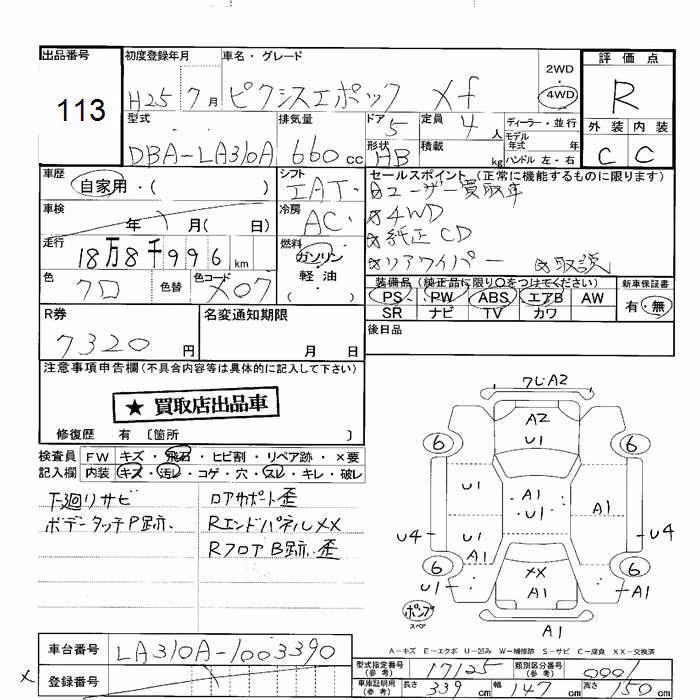 出品番号
113
初度登録年月
H25 7月
車名・グレード
ピクシスエポック Xf
2WD
・
4WD
評価点
R
外装 内装
C C
型式
DBA-LA310A
排気量
660cc
ドア 5
形状 HB
定員 4人
積載 kg
ディーラー・並行
モデル
年式 年
ハンドル 左・右
車歴
自家用・( )
シフト
IAT
セールスポイント(正常に機能するものに限ります)
ユーザー買取車
☆4WD
☆純正CD
☆リアワイパー ☆取説
車検
年 月( 日)
冷房
AC
走行
18万8千996km
燃料
ガソリン
軽・油
( )
色
クロ
色替
色コード
X07
装備品(純正品に限り○をつけてください)
PS PW ABS エアB AW
SR ナビ TV カワ
新車保証書
有・無
R券
7320円
名変通知期限
月 日
後日品
注意事項申告欄(不具合内容等は具体的に記入して下さい)
★買取店出品車
修復歴 有〔箇所 〕
検査員
記入欄
FW キズ・飛石・ヒビ割・リペア跡・×要
内装 キズ・汚レ・コゲ・穴・スレ・キレ・破レ
下廻リサビ
ボデータッチP跡.
ロアサポート歪
RエンドパネルXX
RフロアB跡.歪
フレA2
A2
U1
6
6
U1
A1
U1
A1
U4
U1
A1
U4
6
6
U1
XX
A1
A1
U1
A1
ポンプ
スペア
A-キズ E-エクボ U-凹み W-補修跡 S-サビ C-腐食 XX-交換済
車台番号
LA310A-1003390
登録番号
X
型式指定番号
(参考)
17125
類別区分番号
(参考)
0001
車庫証明用
(参考)
長さ 339cm 幅 147cm 高さ 150cm